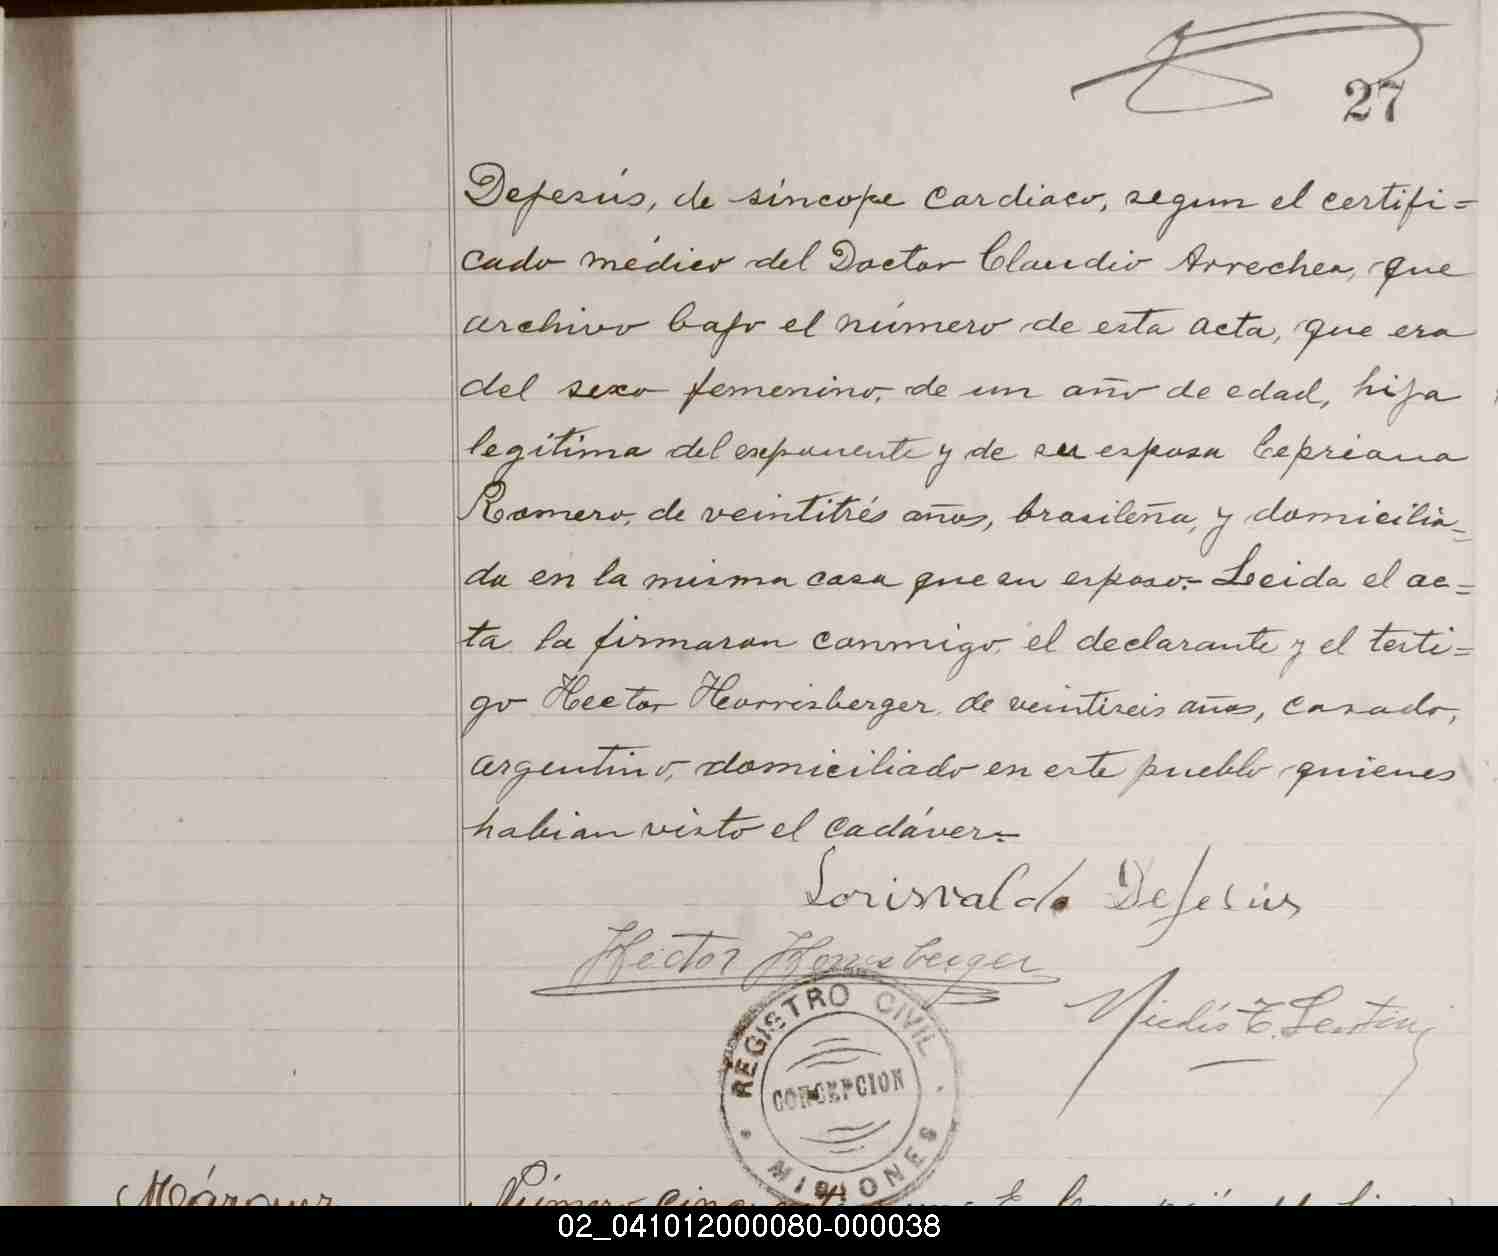 27
Dejesús, de síncope cardiaco, segun el certifi=
cado médico del Doctor Claudio Arrechea, que
archivo bajo el número de esta acta, que era
del sexo femenino, de un año de edad, hija
legítima del exponente y de su esposa Cepriana
Romero, de veintitrés años, brasileña, y domicilia=
da en la misma casa que su esposo.- Leida el ac=
ta la firmaron conmigo, el declarante y el testi=
go Hector Horrisberger, de veintiseis años, casado,
argentino, domiciliado en este pueblo quienes
habian visto el cadáver.=
Lorisvaldo DeJesús
Hector Horrisberger
REGISTRO CIVIL
CONCEPCION
MISIONES
Márquez
Número
02_041012000080-000038